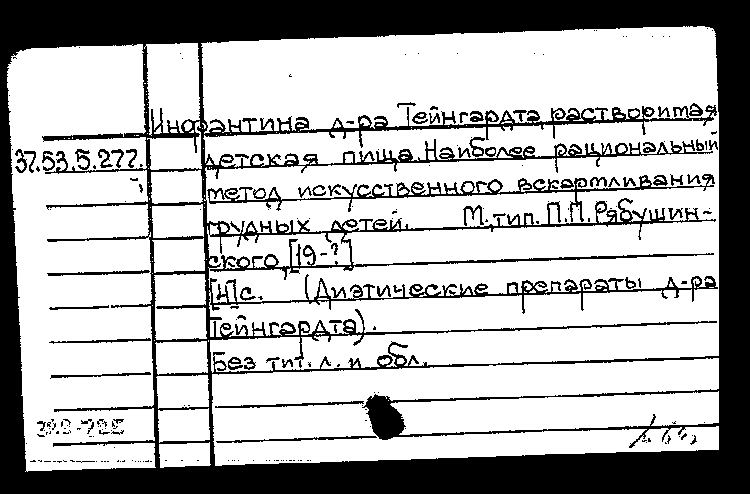 Инфантина д-ра Тейнгардта, растворимая
37.53.5.277. детская пища. Наиболее рациональный
метод искусственного вскармливания
грудных детей. М., тип. П.П. Рябушин-
ского, [19-?]
[4]с. (Диэтические препараты д-ра
Тейнгардта).
Без тит. л. и обл.